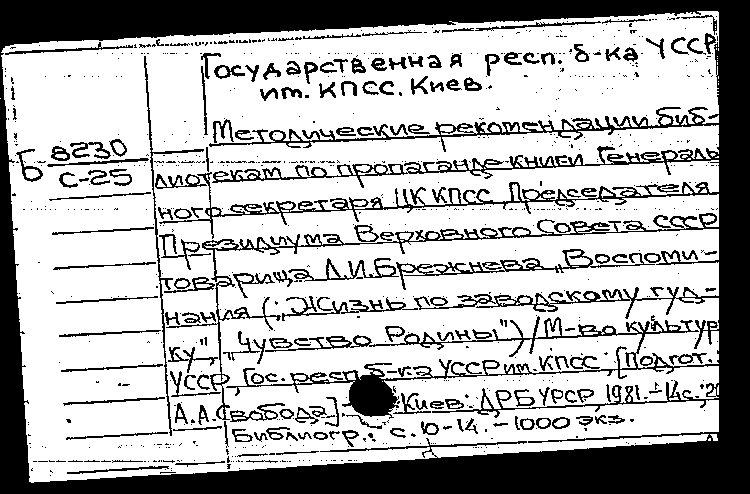 Государственная респ. б-ка УССР
им. КПСС. Киев.
Б 8230
С-25
Методические рекомендации биб-
лиотекам по пропаганде книги Генераль
ного секретаря ЦК КПСС, Председателя
Президиума Верховного Совета СССР
товарища Л.И.Брежнева „Воспоми-
нания („Жизнь по заводскому гуд-
ку", „Чувство Родины")/М-во культур
УССР, Гос. респ. б-ка УССР им. КПСС; [Подгот.:
А.А.Свобода]. Киев: ДРБ УРСР, 1981.-14с.; 20
Библиогр.: с. 10-14. - 1000 экз.